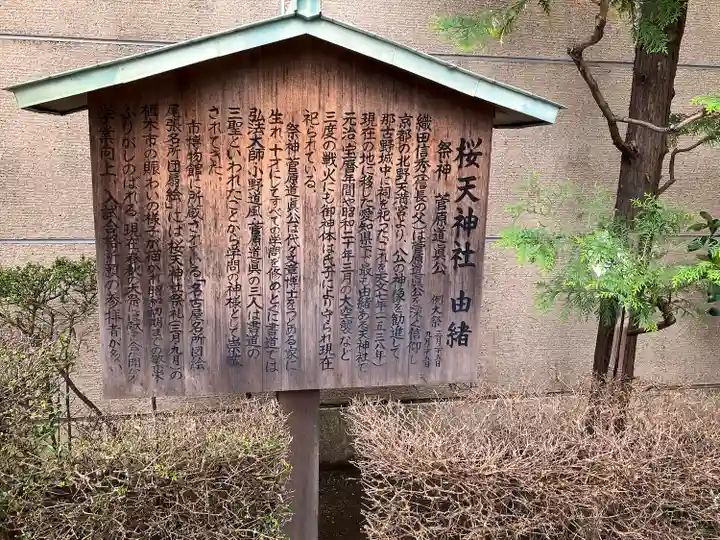 桜天神社 由緒
祭神 菅原道真公
例大祭
織田信秀(信長の父)は菅原道真公を深く信仰し
京都の北野天満宮より、公の神像を勧進して
那古野城中に祠を祀ったこれを天文七年(一五三八年)
現在の地に移した愛知県下最も由緒ある天神社で
元治・宝暦年間や昭和二十年三月の大空襲など
三度の戦火にも御神体は氏子により守られ現在
祀られている。
祭神菅原道真公は代々文章博士をつとめる家に
生れ、十才にしてすべての学問を修めとくに書道では
弘法大師・小野道風・菅原道眞の三人は書道の
三聖といわれたことから学問の神様として崇
されてきた
市博物館に所蔵されている「名古屋名所団絵
尾張名所団扇絵」には桜天神社祭礼(三月九日)の
植木市の賑わいの様子が細か
ぶりがしのばれる。現在
学業向上、入試合格
の参拝者が多い